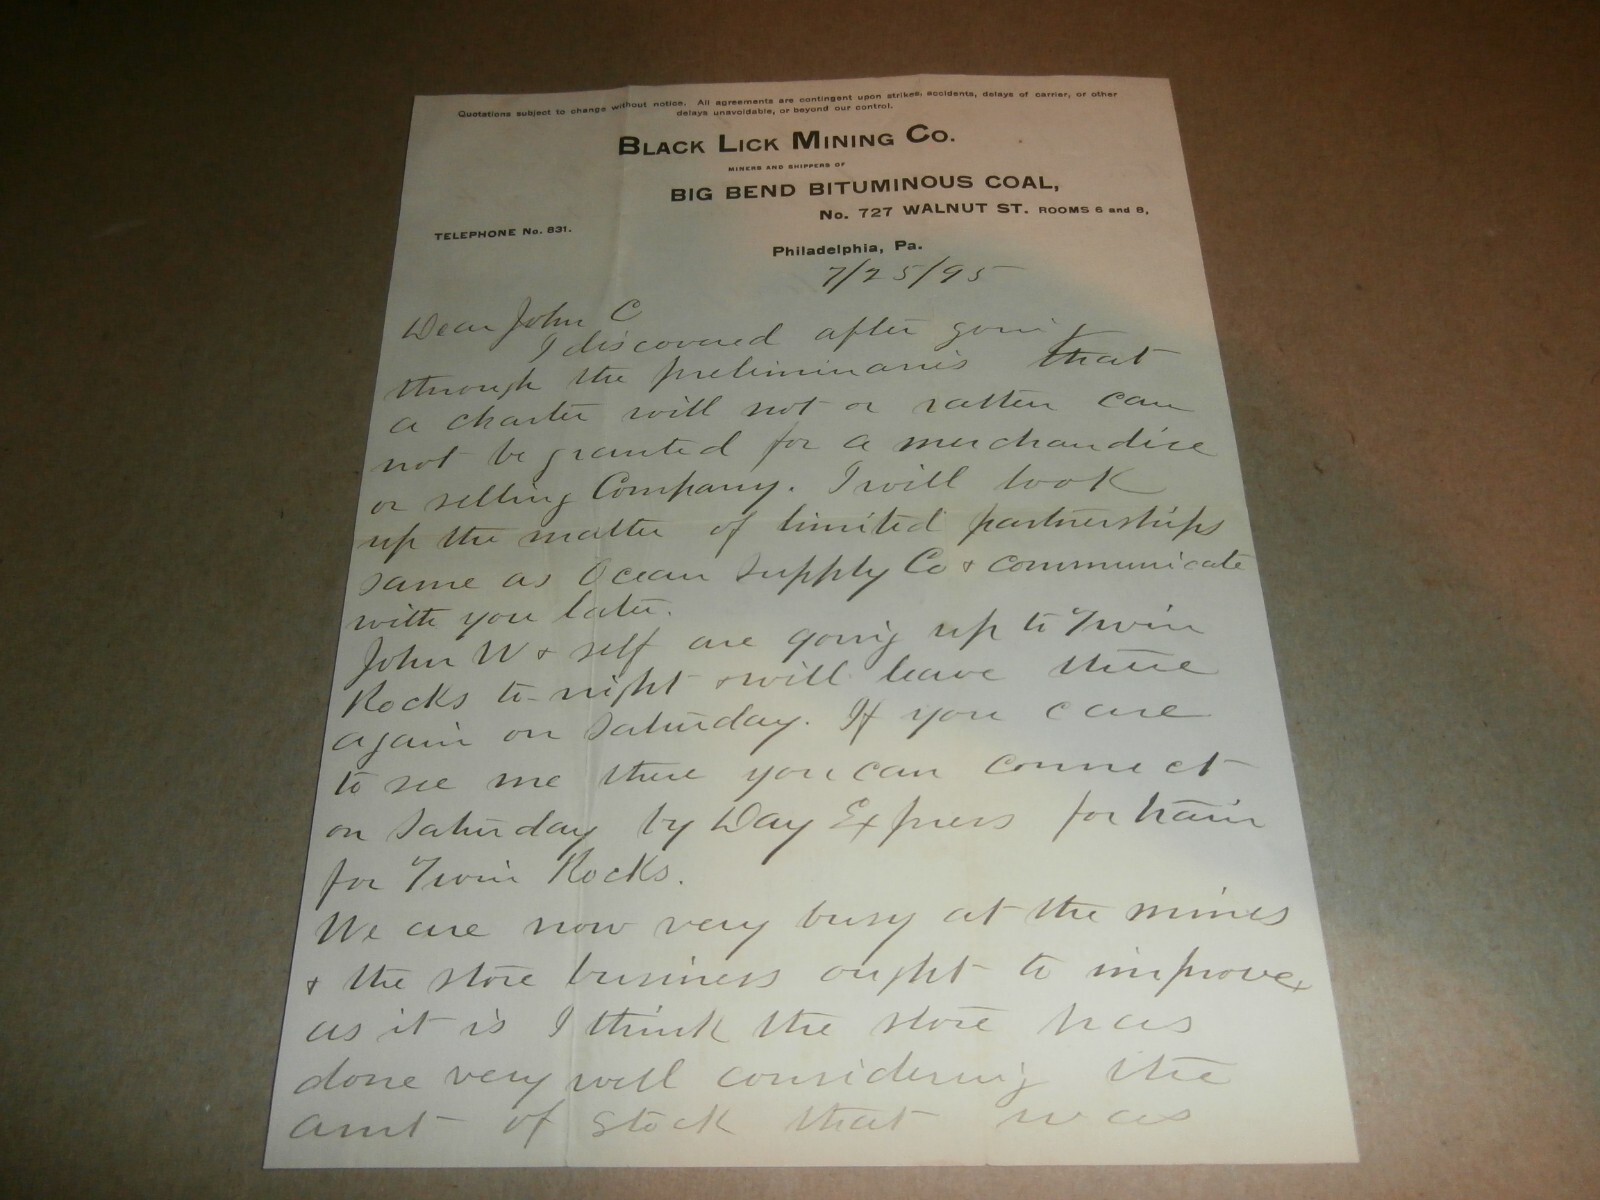 Quotations subject to change without notice. All agreements are contingent upon strikes, accidents, delays of carrier, or other
delays unavoidable, or beyond our control.
BLACK LICK MINING CO.
MINERS AND SHIPPERS OF
BIG BEND BITUMINOUS COAL,
No. 727 WALNUT ST. ROOMS 6 and 8,
TELEPHONE No. 831.
Philadelphia, Pa.
7/25/95
Dear John C
I discovered after going
through the preliminaries that
a charter will not or rather can
not be granted for a merchandise
or selling Company. I will look
up the matter of limited partnerships
same as Ocean Supply Co + communicate
with you later.
John W + self are going up to Twin
Rocks to-night + will leave there
again on Saturday. If you care
to see me there you can connect
on Saturday by Day Express for train
for Twin Rocks.
We are now very busy at the mines
+ the store business ought to improve +
as it is I think the store has
done very well considering the
amt of stock that was